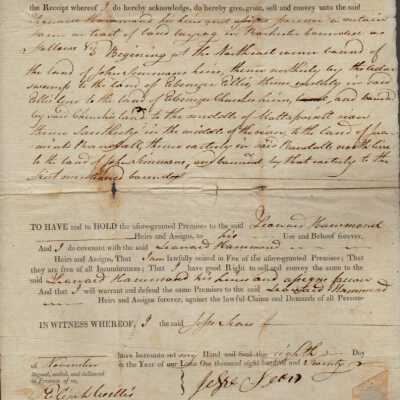 the Receipt whereof I do hereby acknowledge, do hereby give, grant, sell and convey unto the said
Leonard Hammond his heirs and assigns forever a certain
farm or tract of land laying in Rochester bounded as
follows Beginning at the Northeast corner bound of
the land of John Simmons heirs, thence northerly by the
to the land of Ebenezer Ellis, thence easterly in said
Ellis' line to the land of Ebenezer Churches heirs, and bounded
by said Churches land to the middle of Mattapoisett river
thence Southerly in the middle of the river, to the land of
Randall, thence easterly in said Randalls north line
to the land of John Simmons, and bounded by that easterly to the
first mentioned bounds
TO HAVE and to HOLD the aforegranted Premises to the said Leonard Hammond
Heirs and Assigns, to his Use and Behoof forever,
And I do covenant with the said Leonard Hammond
Heirs and Assigns, That I am lawfully seized in Fee of the aforegranted Premises; That
they are free of all Incumbrances; That I have good Right to sell and convey the same to the
said Leonard Hammond his heirs and assigns forever
And that I will warrant and defend the same Premises to the said Leonard Hammond
Heirs and Assigns forever, against the lawful Claims and Demands of all Persons
IN WITNESS WHEREOF, I the said
have hereunto set my Hand and Seal this eighth Day
of November in the Year of our Lord One thousand eight hundred and twenty
Signed, sealed, and delivered
in Presence of us,